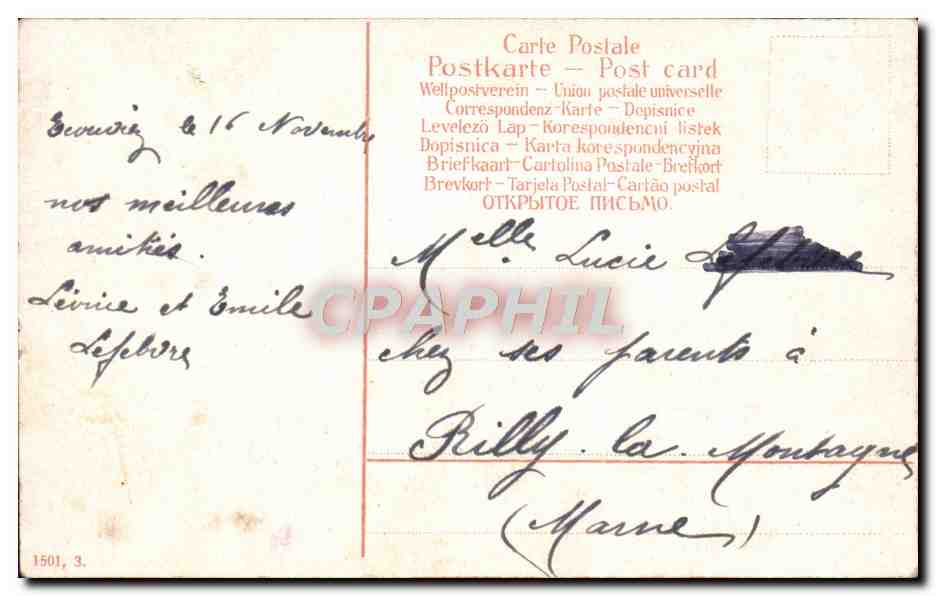 Ecouviez le 16 Novembre
nos meilleures
amitiés.
Léonie et Emile
Lefebvre
1501, 3.
Carte Postale
Postkarte – Post card
Weltpostverein – Union postale universelle
Correspondenz-Karte – Dopisnice
Levelező Lap – Korespondencni listek
Dopisnica – Karta korespondencyjna
Briefkaart – Cartolina Postale – Brefkort
Brevkort – Tarjeta Postal – Cartão postal
ОТКРЫТОЕ ПИСЬМО.
Melle. Lucie
chez ses parents à
Rilly-la-Montagne
(Marne)
CPAPHIL